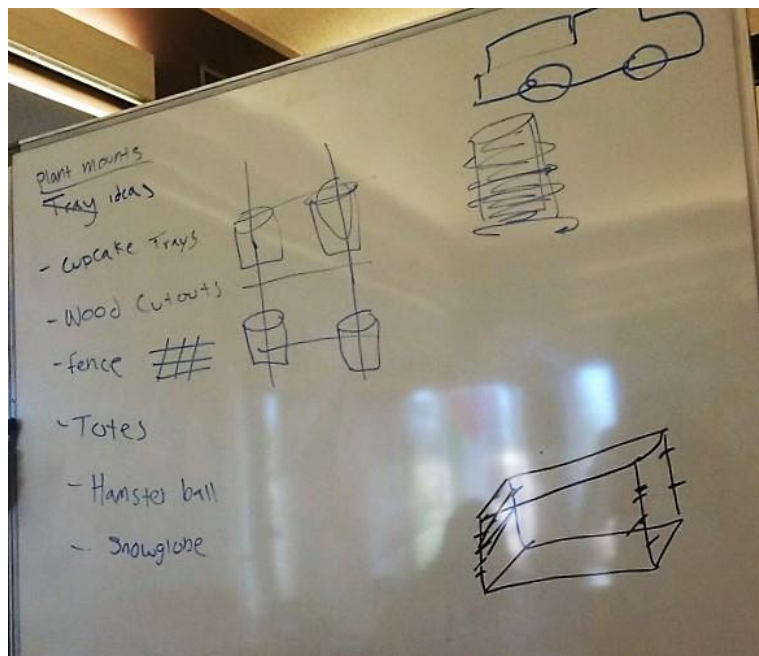 Plant mounts
Tray ideas
- Cupcake Trays
- Wood Cutouts
- fence
- Totes
- Hamster ball
- Snowglobe